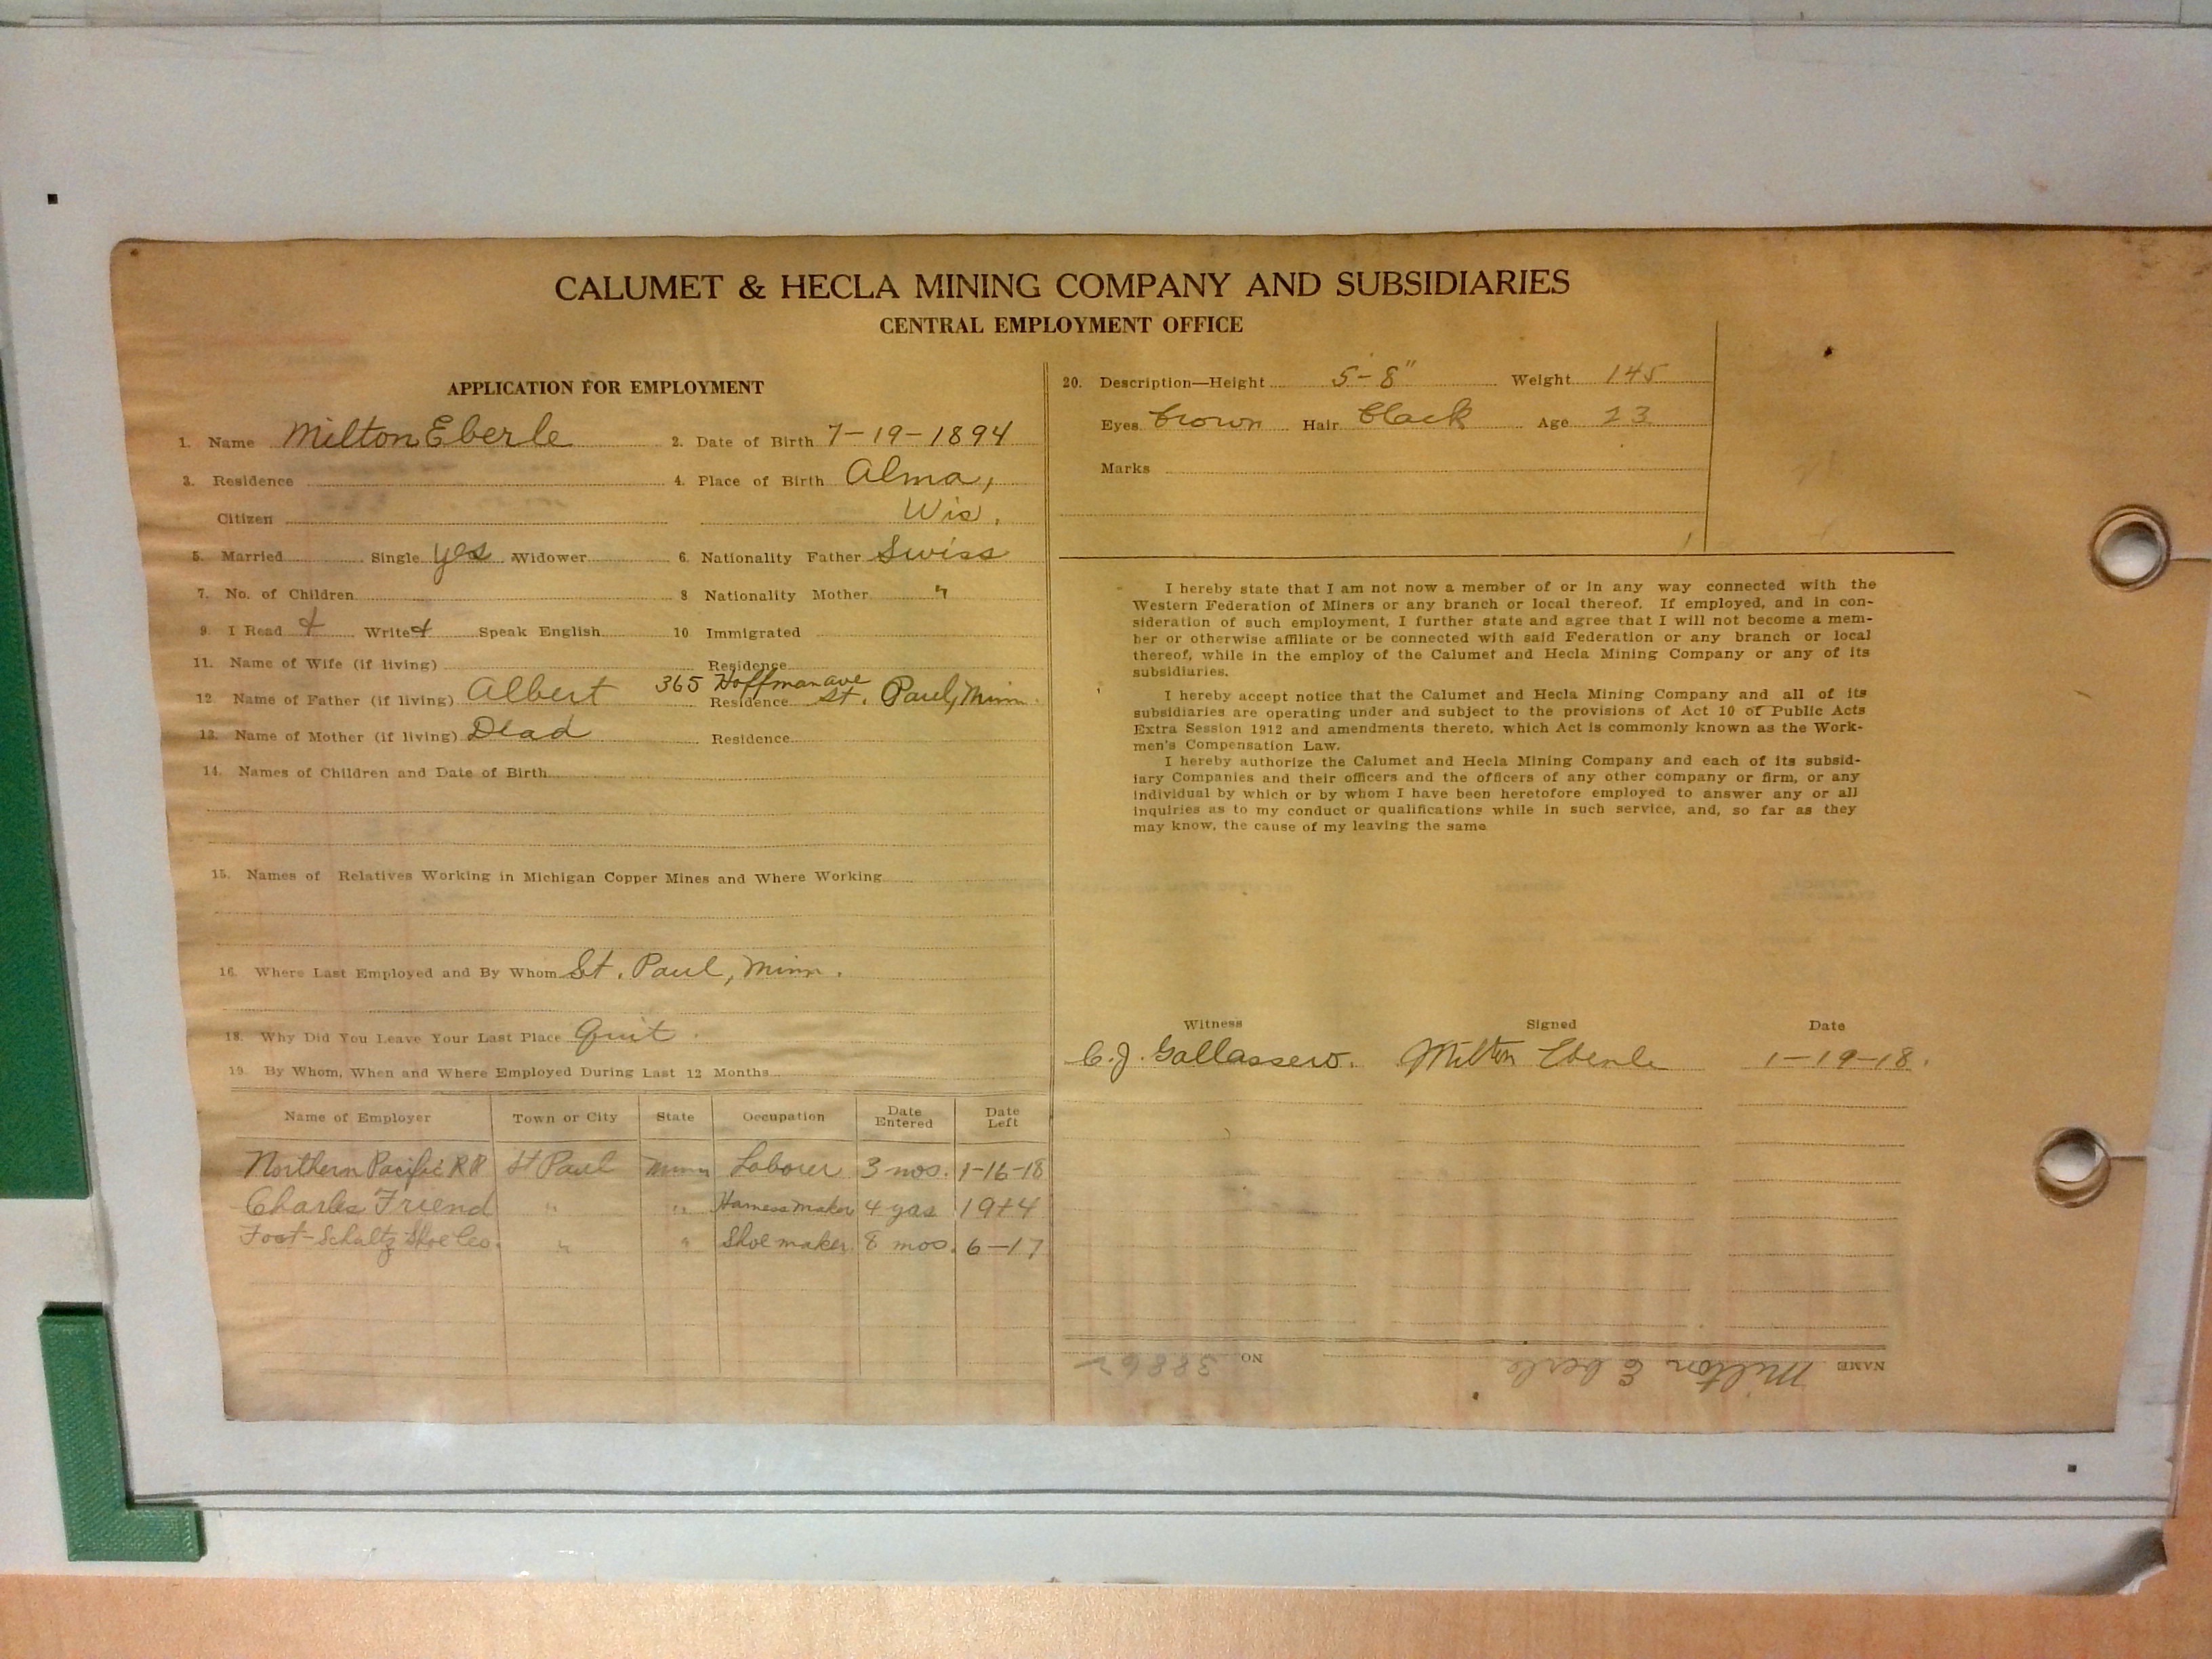 CALUMET & HECLA MINING COMPANY AND SUBSIDIARIES
CENTRAL EMPLOYMENT OFFICE
APPLICATION FOR EMPLOYMENT
1. Name Milton Eberle 2. Date of Birth 7-19-1894
3. Residence 4. Place of Birth Alma,
Citizen Wis.
5. Married Single yes Widower 6. Nationality Father Swiss
7. No. of Children 8 Nationality Mother "
9. I Read + Write + Speak English 10 Immigrated
11. Name of Wife (if living) Residence
12 Name of Father (if living) Albert 365 Hoffman ave Residence St. Paul, Minn.
13. Name of Mother (if living) Dead Residence
14. Names of Children and Date of Birth
15. Names of Relatives Working in Michigan Copper Mines and Where Working
16. Where Last Employed and By Whom St. Paul, Minn.
18. Why Did You Leave Your Last Place Quit.
19. By Whom, When and Where Employed During Last 12 Months
Name of Employer Town or City State Occupation Date Entered Date Left
Northern Pacific RR St Paul Minn Laborer 3 mos. 1-16-18
Charles Friend " " Harness maker 4 yrs
Foot-Schultz Shoe Co. " " Shoe maker 8 mos. 6-17
20. Description—Height 5-8" Weight 145
Eyes brown Hair black Age 23
Marks
I hereby state that I am not now a member of or in any way connected with the
Western Federation of Miners or any branch or local thereof. If employed, and in con-
sideration of such employment, I further state and agree that I will not become a mem-
ber or otherwise affiliate or be connected with said Federation or any branch or local
thereof, while in the employ of the Calumet and Hecla Mining Company or any of its
subsidiaries.
I hereby accept notice that the Calumet and Hecla Mining Company and all of its
subsidiaries are operating under and subject to the provisions of Act 10 of Public Acts
Extra Session 1912 and amendments thereto, which Act is commonly known as the Work-
men's Compensation Law.
I hereby authorize the Calumet and Hecla Mining Company and each of its subsid-
iary Companies and their officers and the officers of any other company or firm, or any
individual by which or by whom I have been heretofore employed to answer any or all
inquiries as to my conduct or qualifications while in such service, and, so far as they
may know, the cause of my leaving the same
Witness Signed Date
C. J. Gallassero. Milton Eberle 1-19-18.
NAME Milton Eberle NO 38862